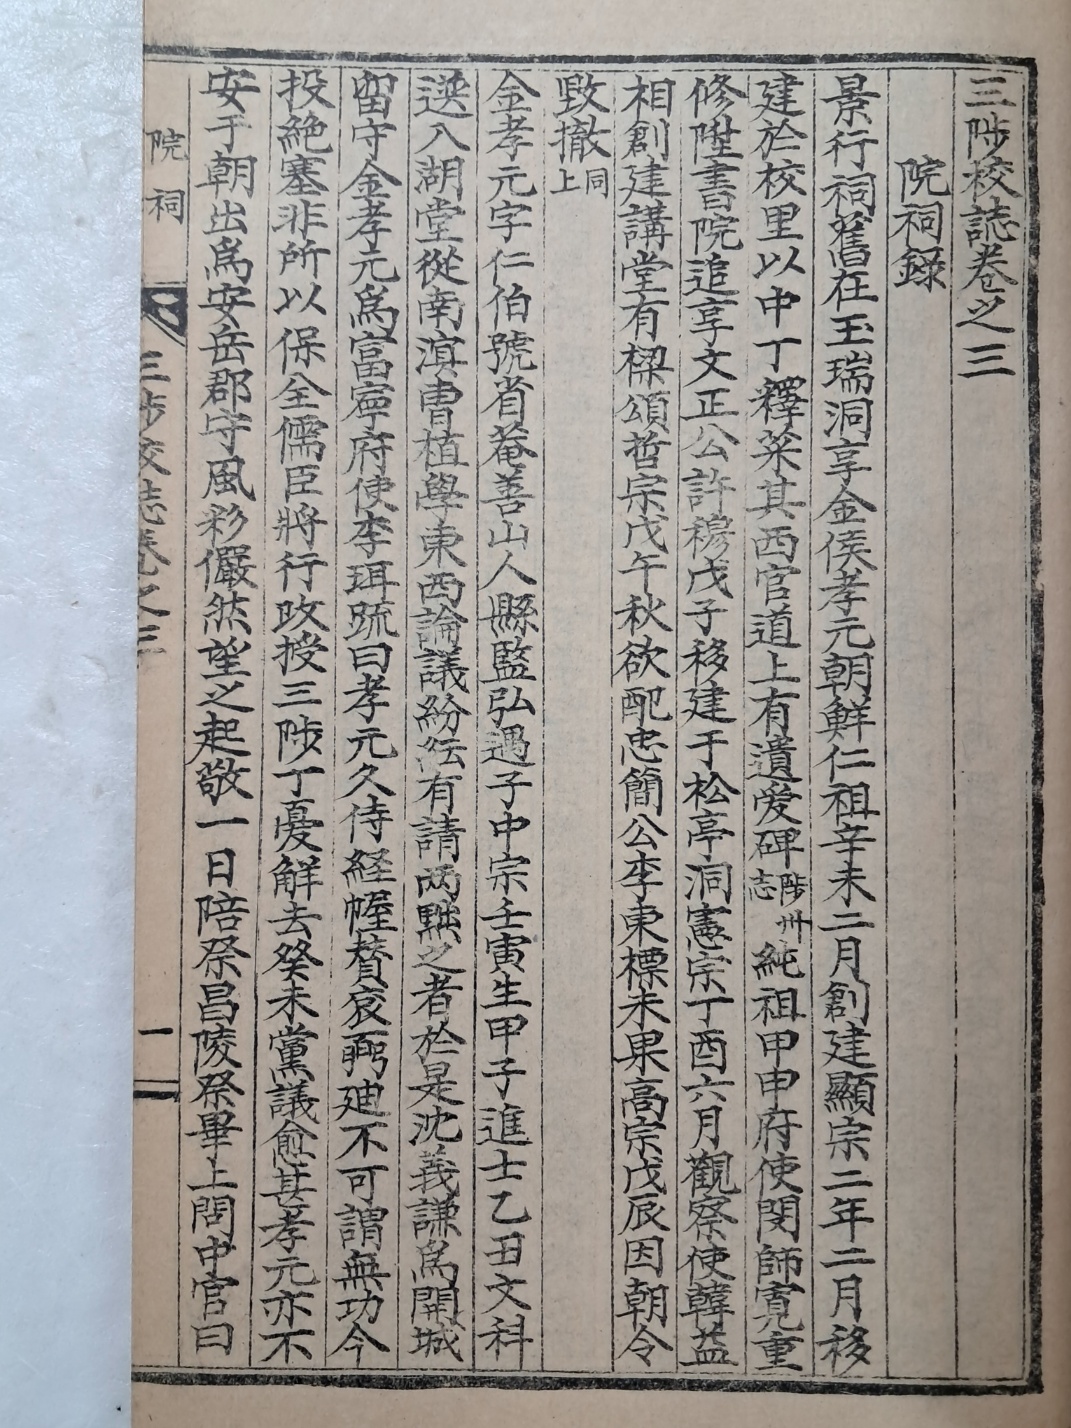 三陟校誌卷之三
院祠錄
景行祠舊在玉瑞洞享金侯孝元朝鮮仁祖辛未二月創建顯宗二年二月移
建於校里以中丁釋菜其西官道上有遺愛碑陟州志純祖甲申府使閔師寬重
修陞書院追享文正公許穆戊子移建于松亭洞憲宗丁酉六月觀察使韓益
相創建講堂有樑頌哲宗戊午秋欲配忠簡公李東標未果高宗戊辰因朝令
毀撤同上
金孝元字仁伯號省菴善山人縣監弘遇子中宗壬寅生甲子進士乙丑文科
選入湖堂從南溟曺植學東西論議紛紜有請兩黜之者於是沈義謙爲開城
留守金孝元爲富寧府使李珥疏曰孝元久侍経幄賛袞弼廸不可謂無功今
投絶塞非所以保全儒臣將行改授三陟丁憂解去癸未黨議愈甚孝元亦不
安于朝出爲安岳郡守風彩儼然望之起敬一日陪祭昌陵祭畢上問中官曰
院祠
三陟校誌卷之三
一